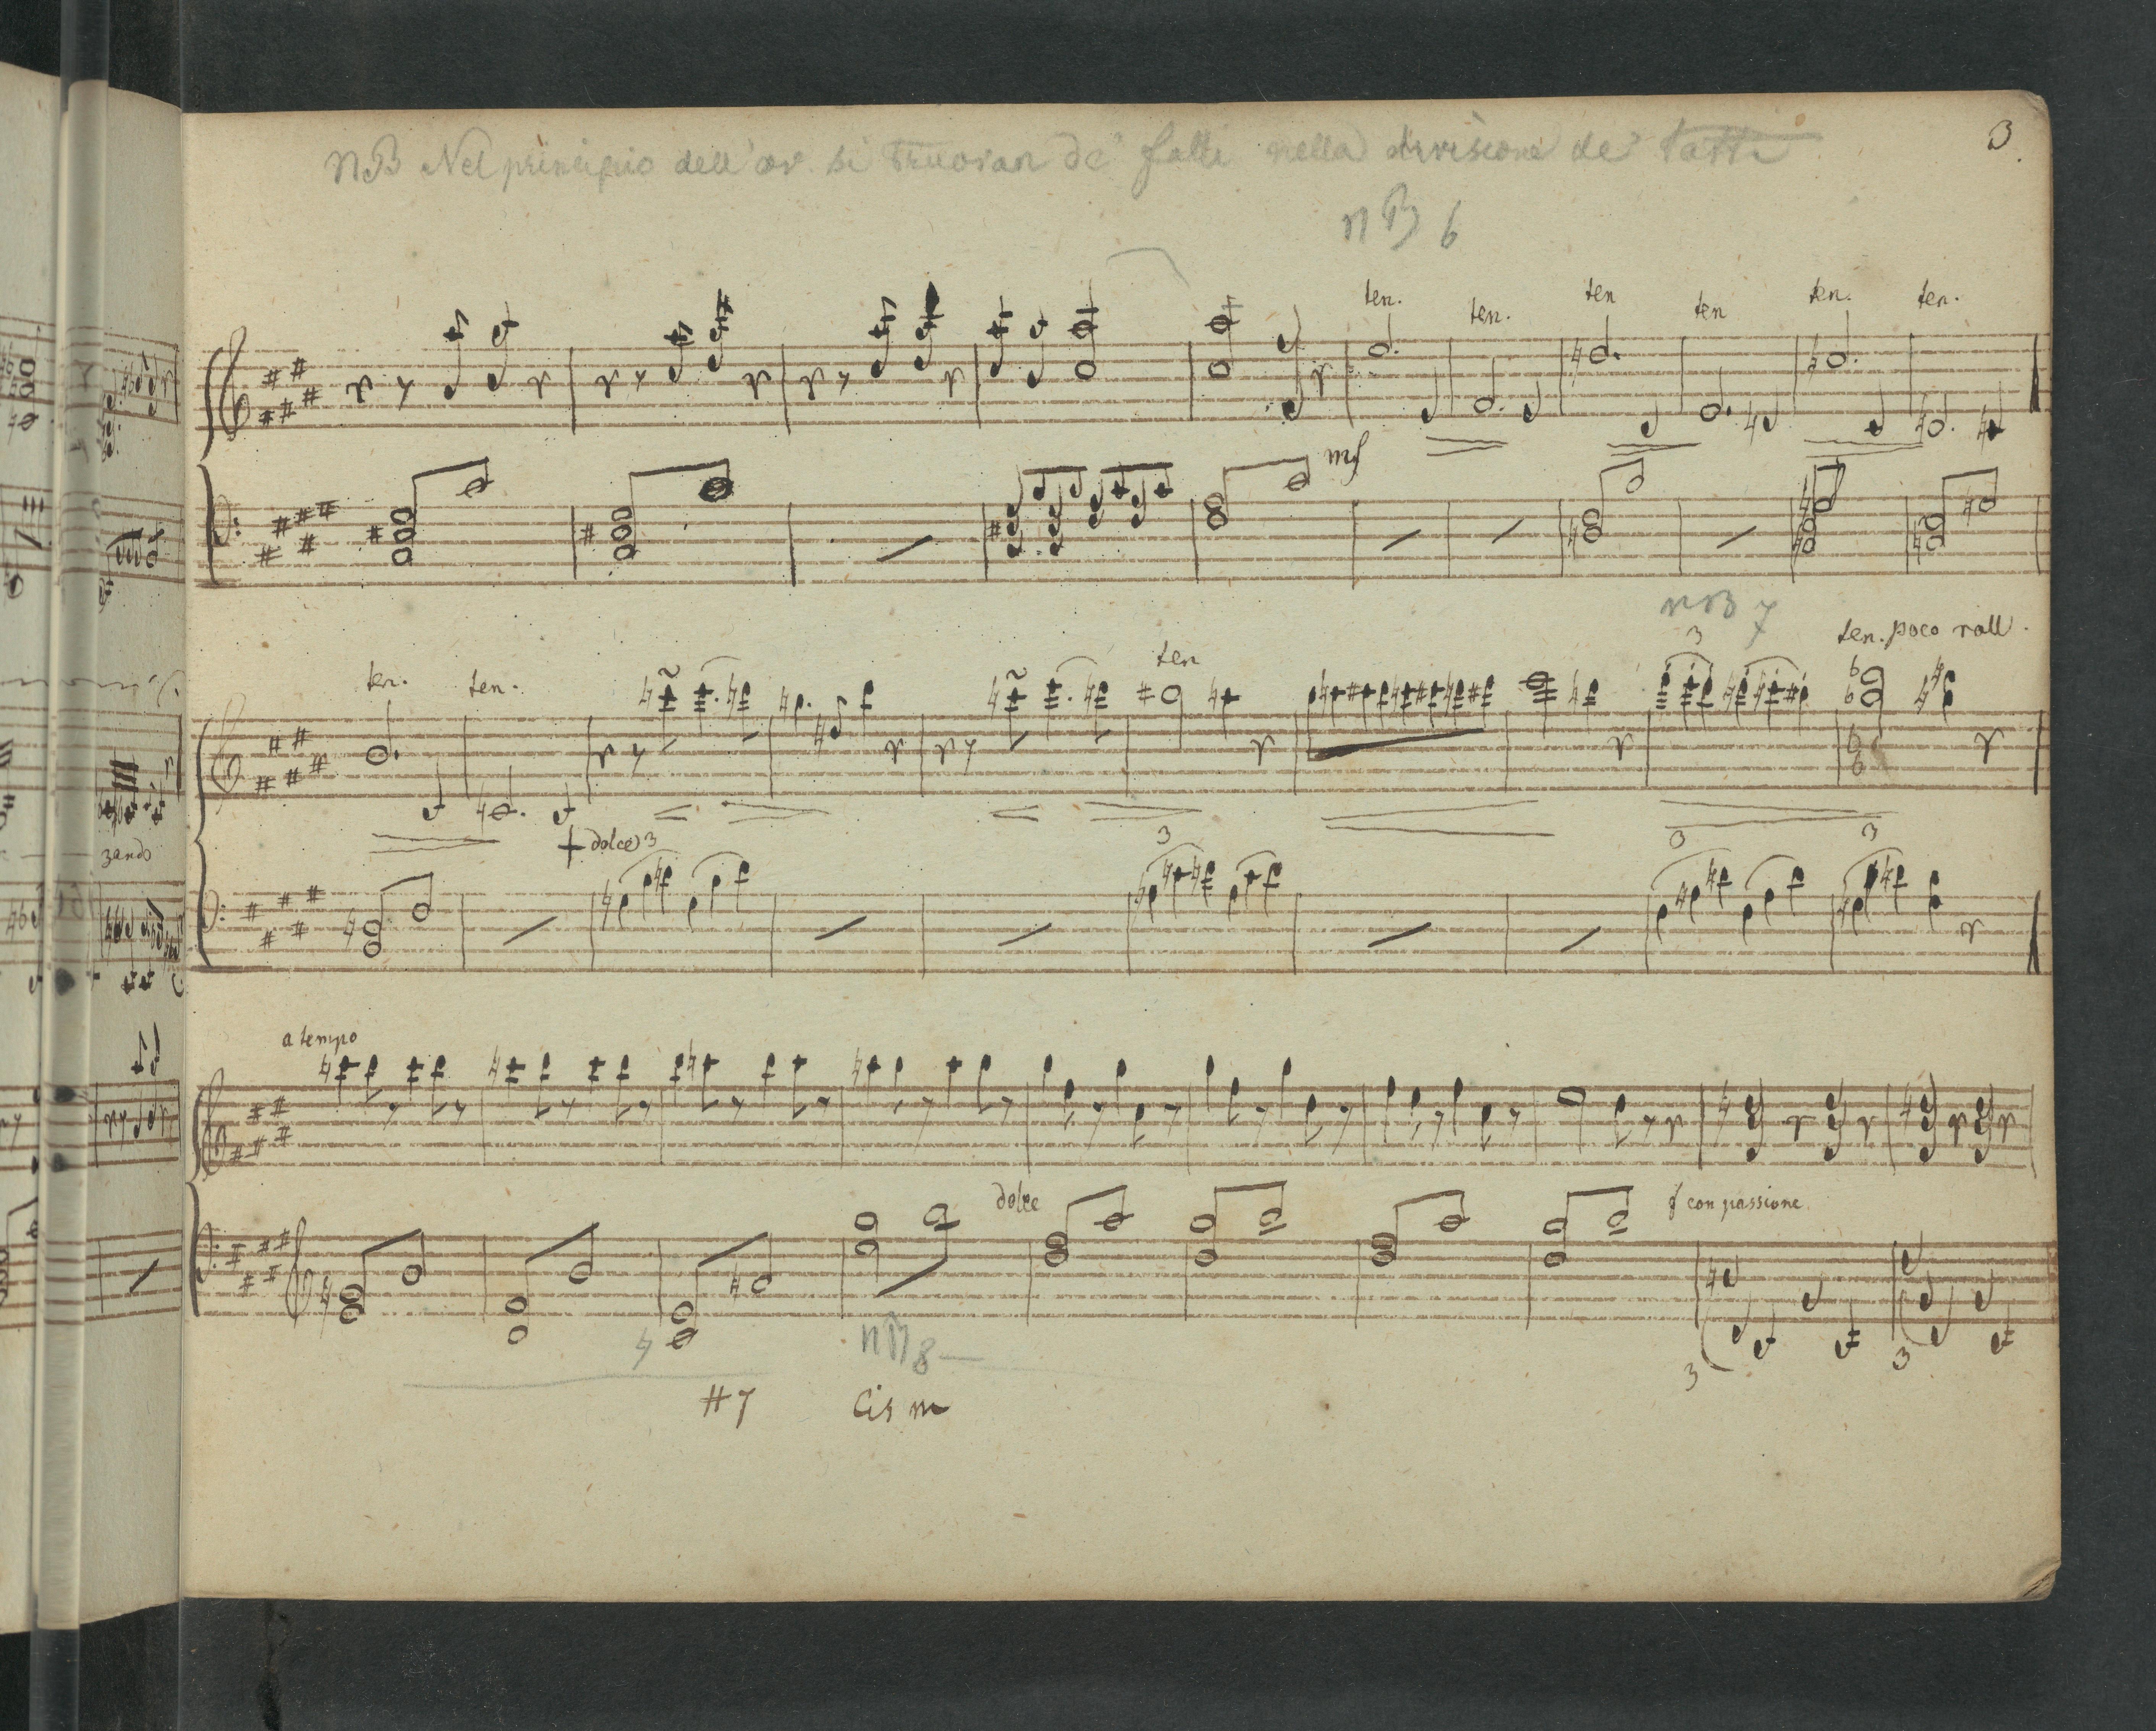 3.
NB Nel principio dell'or. si truovan de' falli nella divisione de' tatti
NB 6
ten. ten. ten ten ten. ten.
mf
NB 7
ten. ten. ten 3 ten. poco rall.
zando
dolce 3 3 3 3
a tempo
dolce f con passione
NB 8
3 3
#7 Cis m